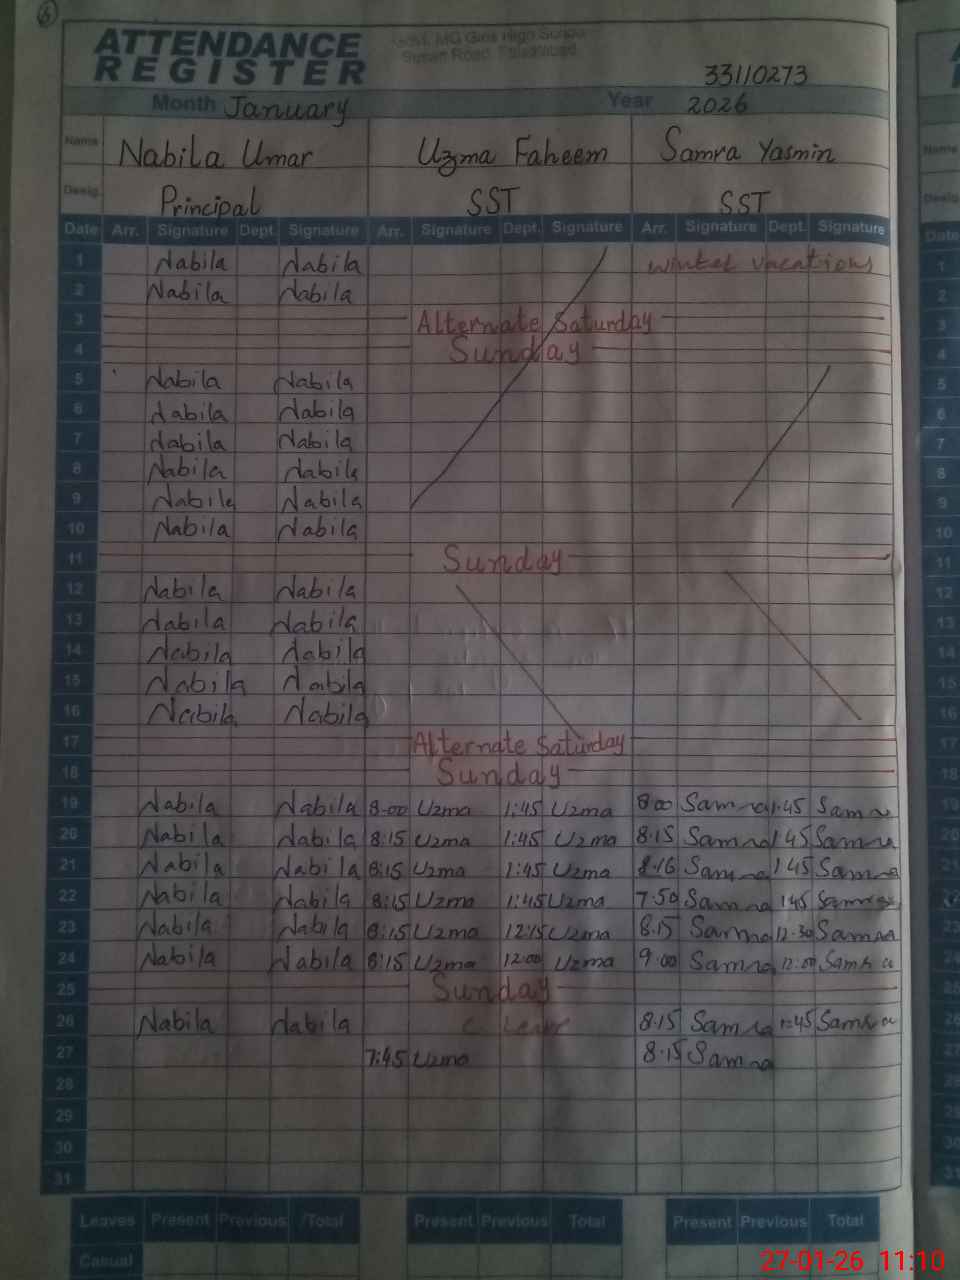 6
ATTENDANCE
REGISTER
MG Girls High School
Susan Road, Faisalabad
33110273
Month January Year 2026
Name Nabila Umar Uzma Faheem Samra Yasmin Name
Desig. Principal SST SST Desig.
Date Arr. Signature Dept. Signature Arr. Signature Dept. Signature Arr. Signature Dept. Signature Date
1 Nabila Nabila winter vacations 1
2 Nabila Nabila 2
3 Alternate Saturday 3
4 Sunday 4
5 Nabila Nabila 5
6 Nabila Nabila 6
7 Nabila Nabila 7
8 Nabila Nabila 8
9 Nabila Nabila 9
10 Nabila Nabila 10
11 Sunday 11
12 Nabila Nabila 12
13 Nabila Nabila 13
14 Nabila Nabila 14
15 Nabila Nabila 15
16 Nabila Nabila 16
17 Alternate Saturday 17
18 Sunday 18
19 Nabila Nabila 8:00 Uzma 1:45 Uzma 8:00 Samra 1:45 Samra 19
20 Nabila Nabila 8:15 Uzma 1:45 Uzma 8:15 Samra 1:45 Samra 20
21 Nabila Nabila 8:15 Uzma 1:45 Uzma 8:16 Samra 1:45 Samra 21
22 Nabila Nabila 8:15 Uzma 1:45 Uzma 7:50 Samra 1:45 Samra 22
23 Nabila Nabila 8:15 Uzma 12:15 Uzma 8:15 Samra 12:30 Samra 23
24 Nabila Nabila 8:15 Uzma 12:00 Uzma 9:00 Samra 12:00 Samra 24
25 Sunday 25
26 Nabila Nabila C. Leave 8:15 Samra 1:45 Samra 26
27 7:45 Uzma 8:15 Samra 27
28 28
29 29
30 30
31 31
Leaves Present Previous Total Present Previous Total Present Previous Total
Casual
27-01-26 11:10